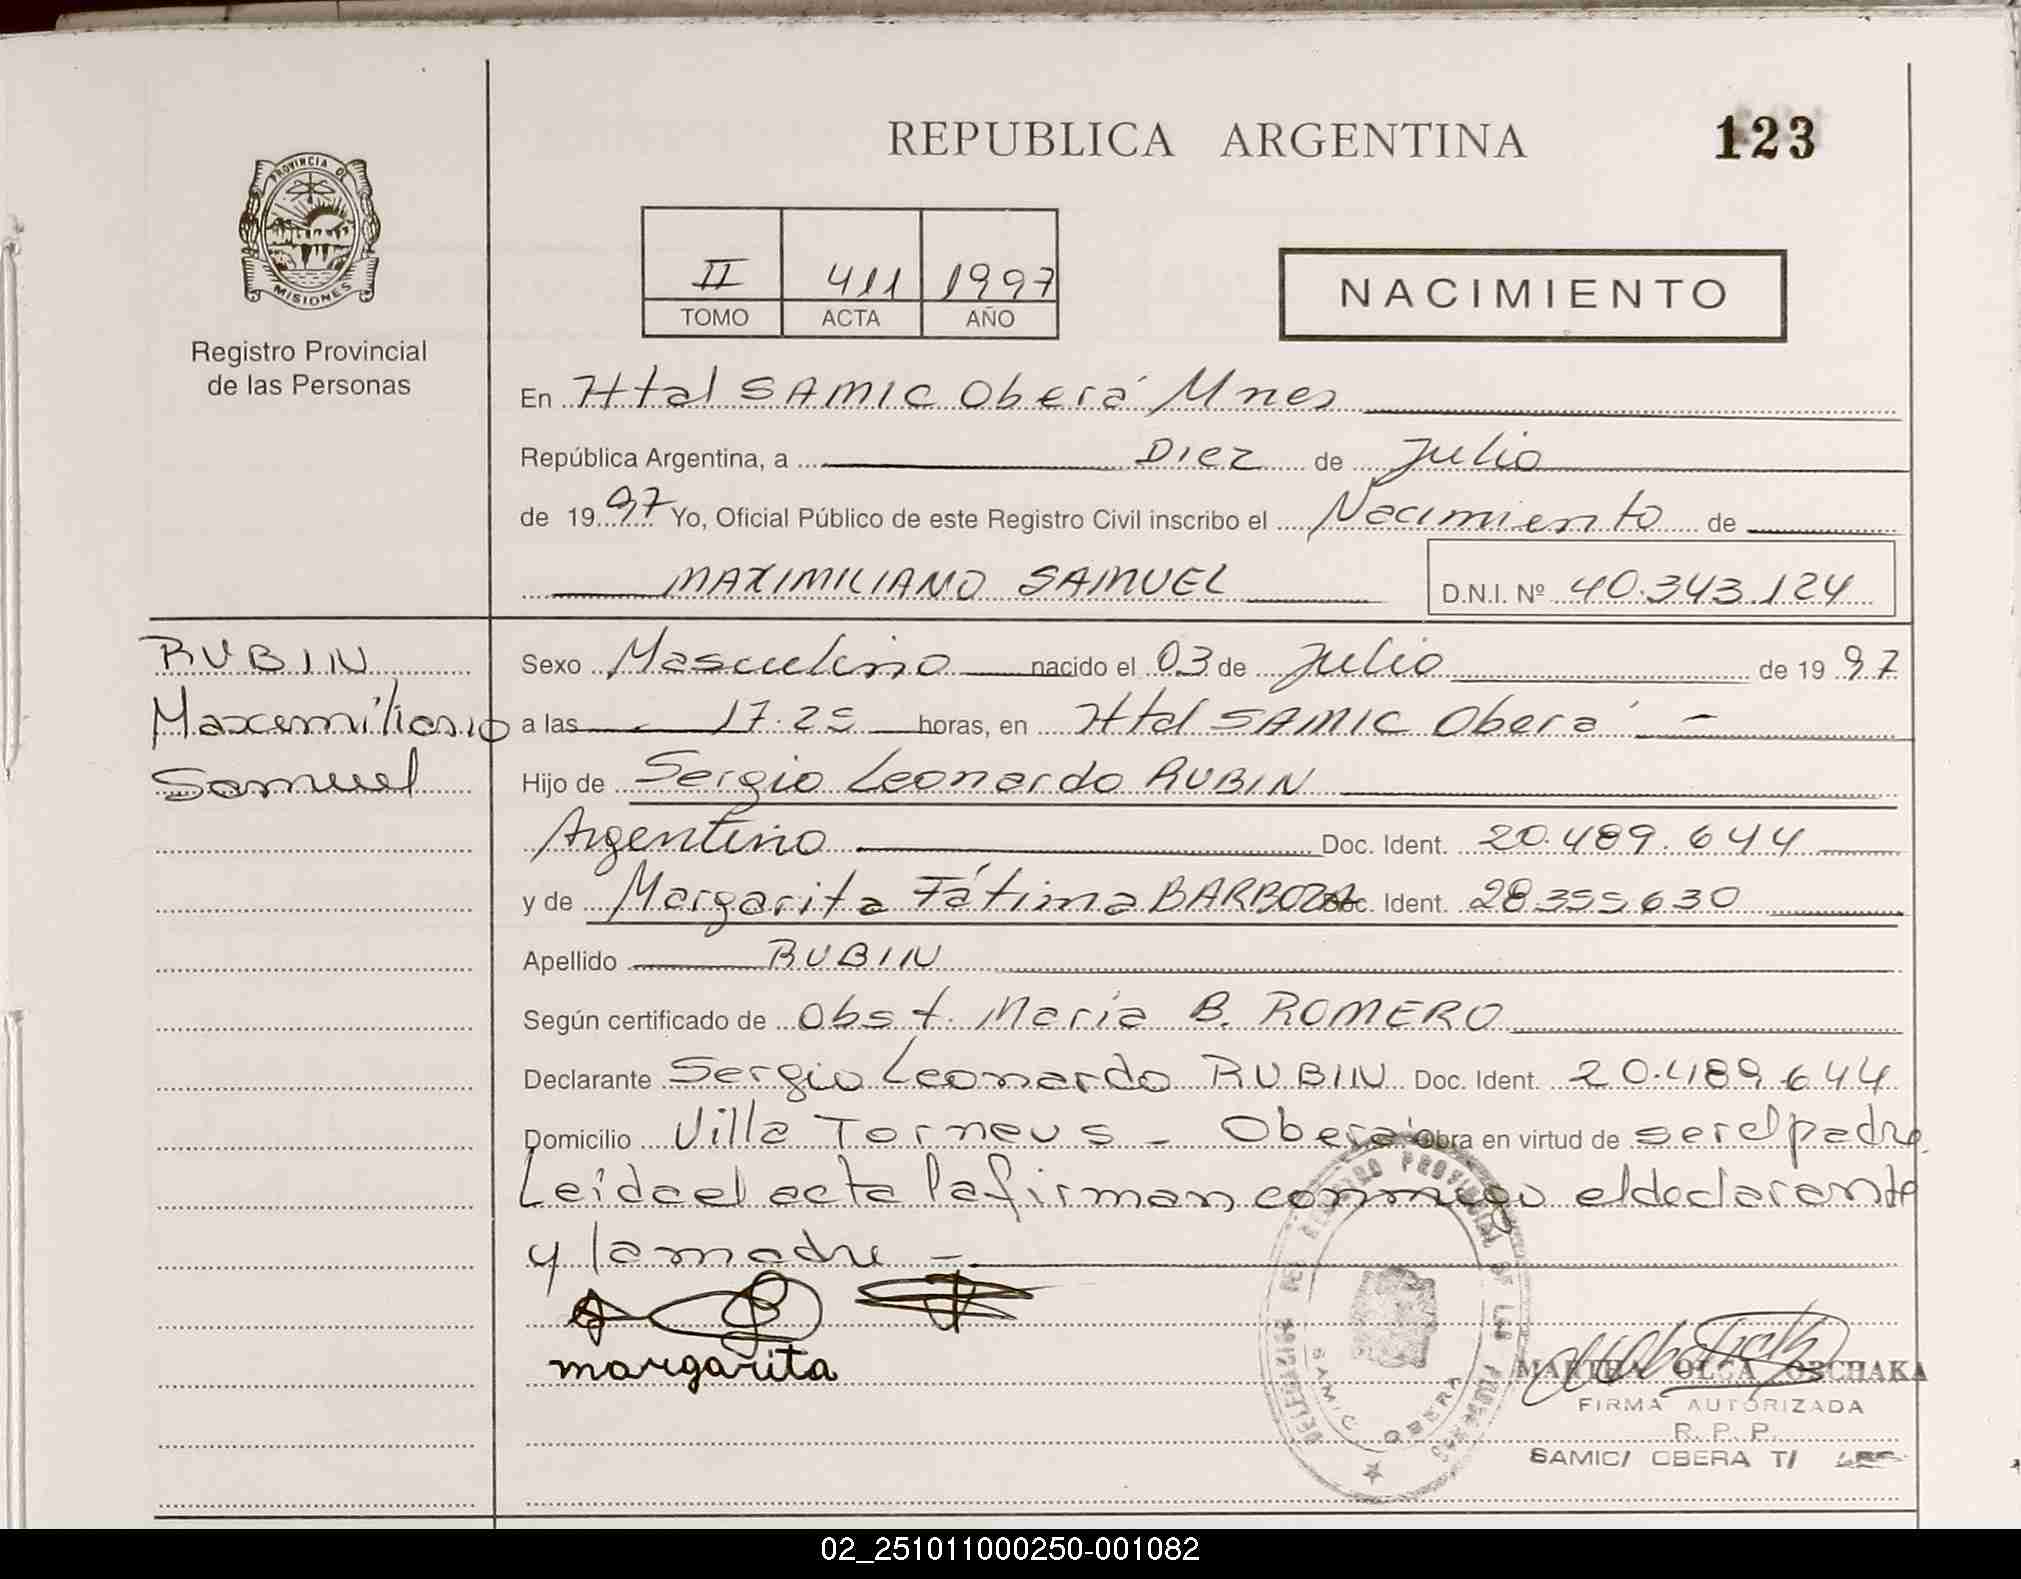 REPUBLICA ARGENTINA
123
PROVINCIA DE
MISIONES
Registro Provincial
de las Personas
II 411 1997
TOMO ACTA AÑO
NACIMIENTO
En Htal SAMIC Oberá Mnes
República Argentina, a Diez de Julio
de 1997 Yo, Oficial Público de este Registro Civil inscribo el Nacimiento de
MAXIMILIANO SAMUEL D.N.I. Nº 40.343.124
RUBIN
Maximiliano
Samuel
Sexo Masculino nacido el 03 de Julio de 1997
a las 17.25 horas, en Htal SAMIC Oberá -
Hijo de Sergio Leonardo RUBIN
Argentino Doc. Ident. 20.489.644
y de Margarita Fátima BARBOZA Doc. Ident. 28.355.630
Apellido RUBIN
Según certificado de Obst. María B. ROMERO
Declarante Sergio Leonardo RUBIN Doc. Ident. 20.489.644
Domicilio Villa Torneus - Oberá Obra en virtud de ser el padre
Leida el acta la firman conmigo el declarante
y la madre -
margarita
DELEGACION DEL REGISTRO PROVINCIAL DE LAS PERSONAS
SAMIC OBERA
MARTHA OLGA
FIRMA AUTORIZADA
R. P. P.
SAMIC/ OBERA T/
02_251011000250-001082